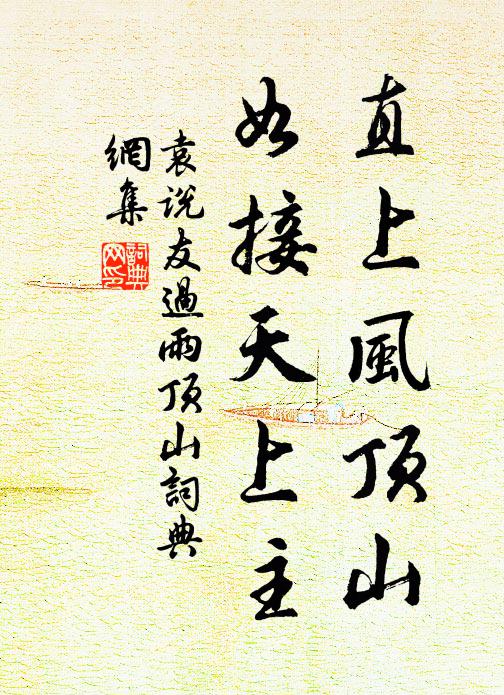 直上風頂山
如接天上主
袁说友過雨頂山詞典
網集
詞典
网印